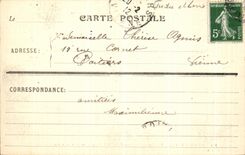 CARTE POSTALE
Le
Mademoiselle Thérèse
ADRESSE:
19 rue Carnot
Poitiers
Vienne
CORRESPONDANCE:
amitiés
Maximilienne
5c